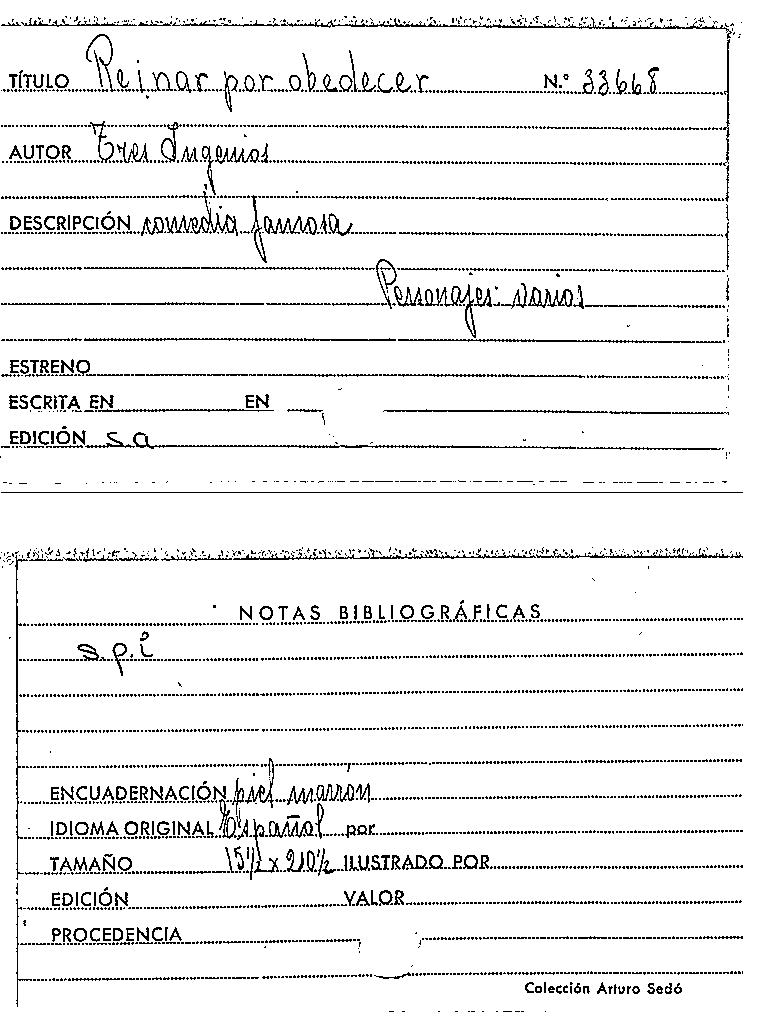 TÍTULO Reinar por obedecer N.º 33668
AUTOR Tres Ingenios
DESCRIPCIÓN comedia famosa
Personajes: varios
ESTRENO
ESCRITA EN EN
EDICIÓN S.a
NOTAS BIBLIOGRÁFICAS
s.p.i
ENCUADERNACIÓN piel marrón
IDIOMA ORIGINAL Español por
TAMAÑO 15½ x 210½ ILUSTRADO POR
EDICIÓN VALOR
PROCEDENCIA
Colección Arturo Sedó